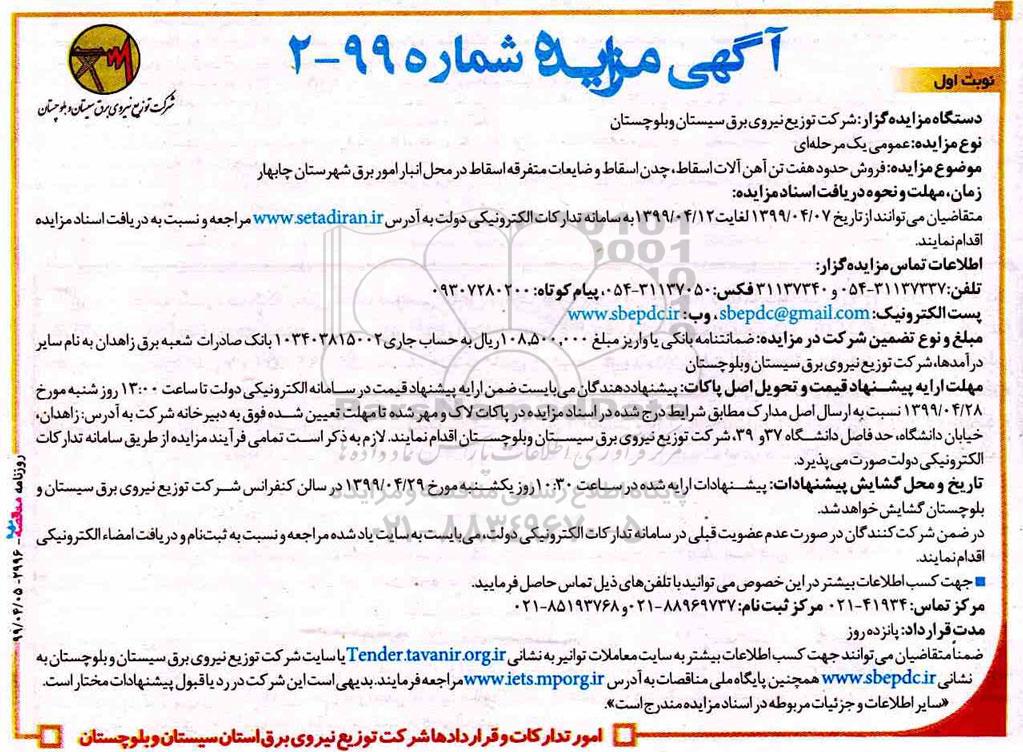 آگهی مزایده شماره ۹۹-۲
نوبت اول
شرکت توزیع نیروی برق سیستان و بلوچستان
دستگاه مزایده گزار: شرکت توزیع نیروی برق سیستان وبلوچستان
نوع مزایده: عمومی یک مرحله‌ای
موضوع مزایده: فروش حدود هفت تن آهن آلات اسقاط، چدن اسقاط و ضایعات متفرقه اسقاط در محل انبار امور برق شهرستان چابهار
زمان، مهلت و نحوه دریافت اسناد مزایده:
متقاضیان می‌توانند از تاریخ ۱۳۹۹/۰۴/۰۷ لغایت ۱۳۹۹/۰۴/۱۲ به سامانه تدارکات الکترونیکی دولت به آدرس www.setadiran.ir مراجعه و نسبت به دریافت اسناد مزایده
اقدام نمایند.
اطلاعات تماس مزایده گزار:
تلفن: ۳۱۱۳۷۳۳۷-۰۵۴ و ۳۱۱۳۷۳۴۰ فکس: ۳۱۱۳۷۰۵۰-۰۵۴، پیام کوتاه: ۰۹۳۰۷۲۸۰۲۰۰
پست الکترونیک: sbepdc@gmail.com، وب: www.sbepdc.ir
مبلغ و نوع تضمین شرکت در مزایده: ضمانتنامه بانکی یا واریز مبلغ ۱۰۸,۵۰۰,۰۰۰ ریال به حساب جاری ۱۰۳۴۰۳۸۱۵۰۰۲ بانک صادرات شعبه برق زاهدان به نام سایر
درآمدها، شرکت توزیع نیروی برق سیستان وبلوچستان
مهلت ارایه پیشنهاد قیمت و تحویل اصل پاکات: پیشنهاددهندگان می‌بایست ضمن ارایه پیشنهاد قیمت در سامانه الکترونیکی دولت تا ساعت ۱۳:۰۰ روز شنبه مورخ
۱۳۹۹/۰۴/۲۸ نسبت به ارسال اصل مدارک مطابق شرایط درج شده در اسناد مزایده در پاکات لاک و مهر شده تا مهلت تعیین شده فوق به دبیرخانه شرکت به آدرس: زاهدان،
خیابان دانشگاه، حد فاصل دانشگاه ۳۷ و ۳۹، شرکت توزیع نیروی برق سیستان وبلوچستان اقدام نمایند. لازم به ذکر است تمامی فرآیند مزایده از طریق سامانه تدارکات
الکترونیکی دولت صورت می‌پذیرد.
تاریخ و محل گشایش پیشنهادات: پیشنهادات ارایه شده در ساعت ۱۰:۳۰ روز یکشنبه مورخ ۱۳۹۹/۰۴/۲۹ در سالن کنفرانس شرکت توزیع نیروی برق سیستان و
بلوچستان گشایش خواهد شد.
در ضمن شرکت کنندگان در صورت عدم عضویت قبلی در سامانه تدارکات الکترونیکی دولت، می‌بایست به سایت یاد شده مراجعه و نسبت به ثبت‌نام و دریافت امضاء الکترونیکی
اقدام نمایند.
جهت کسب اطلاعات بیشتر در این خصوص می توانید با تلفن‌های ذیل تماس حاصل فرمایید.
مرکز تماس: ۴۱۹۳۴-۰۲۱ مرکز ثبت نام: ۸۸۹۶۹۷۳۷-۰۲۱ و ۸۵۱۹۳۷۶۸-۰۲۱
مدت قرارداد: پانزده روز
ضمناً متقاضیان می توانند جهت کسب اطلاعات بیشتر به سایت معاملات توانیر به نشانی Tender.tavanir.org.ir یا سایت شرکت توزیع نیروی برق سیستان و بلوچستان به
نشانی www.sbepdc.ir همچنین پایگاه ملی مناقصات به آدرس www.iets.mporg.ir مراجعه فرمایند. بدیهی است این شرکت در رد یا قبول پیشنهادات مختار است.
«سایر اطلاعات و جزئیات مربوطه در اسناد مزایده مندرج است».
امور تدارکات و قراردادها شرکت توزیع نیروی برق استان سیستان وبلوچستان
روزنامه مناقصه مزایده - ۲۹۹۶ - ۹۹/۰۴/۰۵
پایگاه اطلاع رسانی مناقصه و مزایده
۰۲۱-۸۸۳۴۹۶۷۰-۵